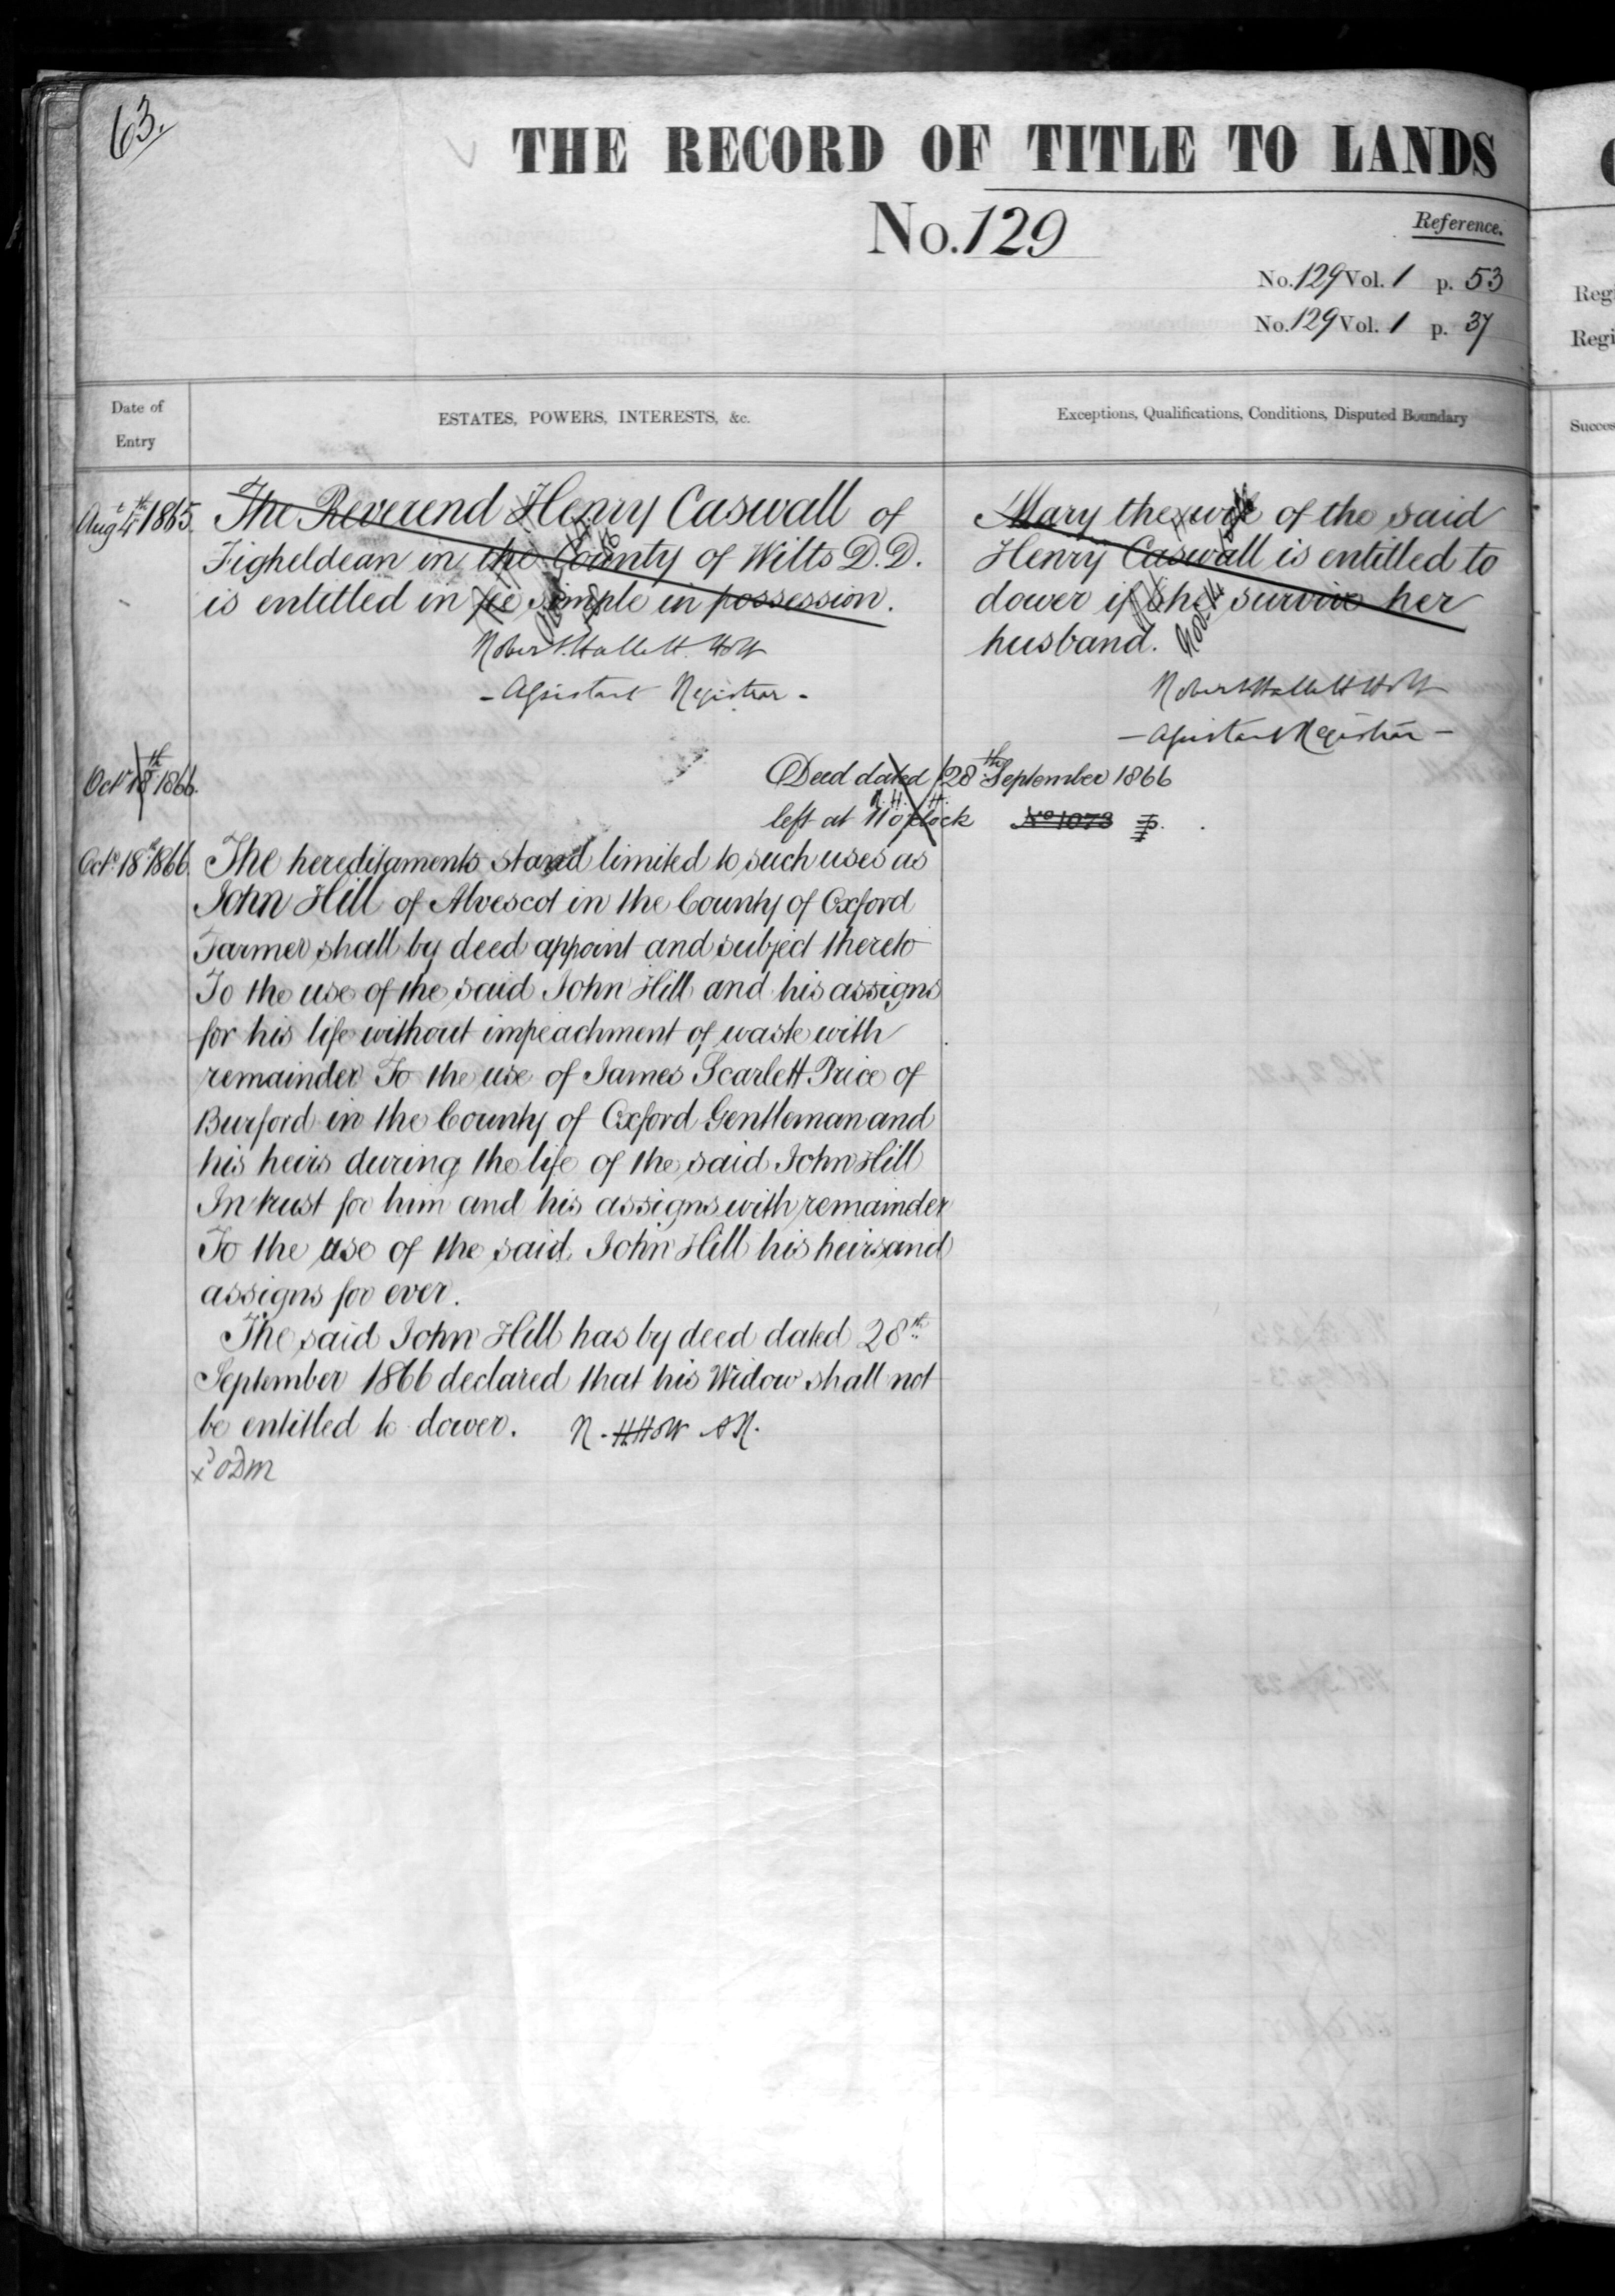 63.
THE RECORD OF TITLE TO LANDS
No. 129
Reference.
No. 129 Vol. 1 p. 53
No. 129 Vol. 1 p. 37
Date of Entry
ESTATES, POWERS, INTERESTS, &c.
Exceptions, Qualifications, Conditions, Disputed Boundary
Augt 4th 1865.
The Reverend Henry Caswall of
Figheldean in the County of Wilts D.D.
is entitled in fee simple in possession.
Robert Hallett Holt
- Assistant Registrar -
Mary the wife of the said
Henry Caswall is entitled to
dower if she survive her
husband.
Robert Hallett Holt
- Assistant Registrar -
Octr 18th 1866.
Deed dated 28th September 1866
left at 11 o'clock No 1073
R. H. H.
Octr. 18th 1866.
The hereditaments stand limited to such uses as
John Hill of Alvescot in the County of Oxford
Farmer shall by deed appoint and subject thereto
To the use of the said John Hill and his assigns
for his life without impeachment of waste with
remainder To the use of James Scarlett Price of
Burford in the County of Oxford Gentleman and
his heirs during the life of the said John Hill
In trust for him and his assigns with remainder
To the use of the said John Hill his heirs and
assigns for ever.
The said John Hill has by deed dated 28th
September 1866 declared that his Widow shall not
be entitled to dower. R. H. Holt A R.
Reg
Regi
Succes